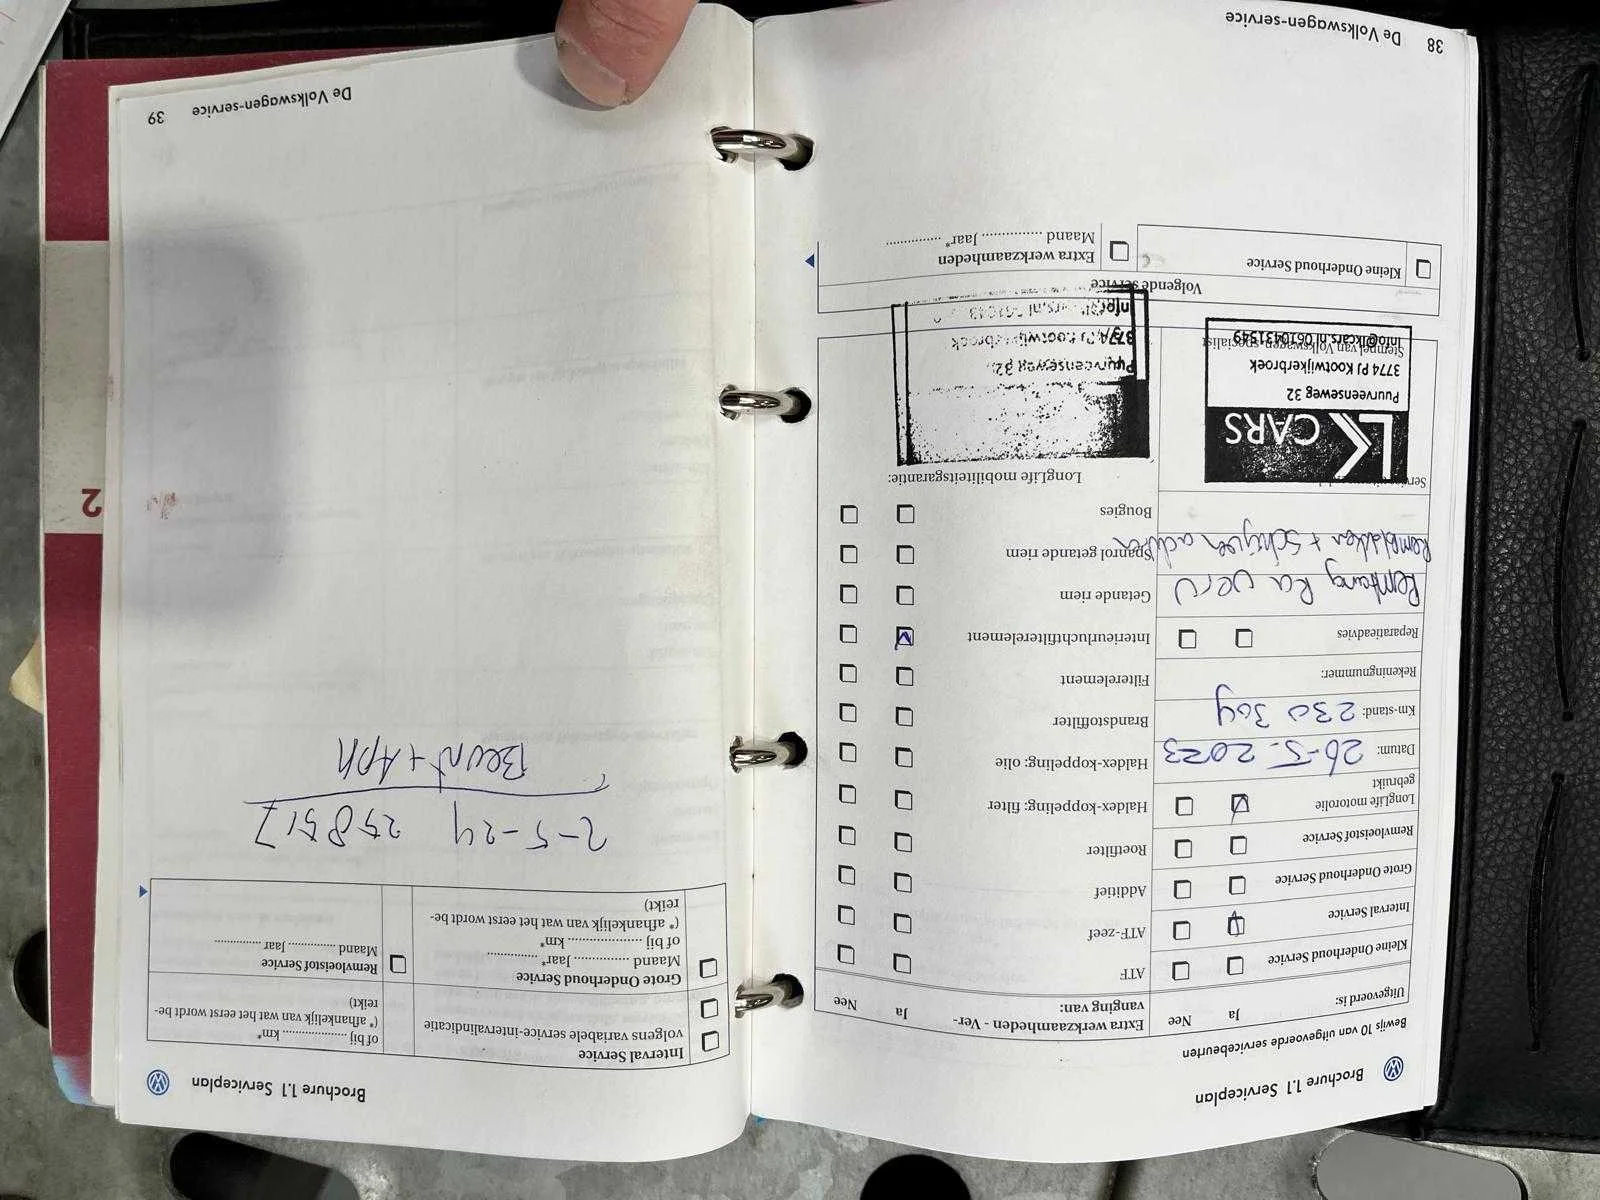 Brochure 1.1 Serviceplan
Bewijs 10 van uitgevoerde servicebeurten
Uitgevoerd is:
Ja
Nee
Kleine Onderhoud Service
Interval Service
Grote Onderhoud Service
Remvloeistof Service
LongLife motorolie
gebruikt
Datum: 26-5-2023
Km-stand: 230 304
Rekeningnummer:
Reparatieadvies
Remblokken + Schijven achter
LK CARS
Puurveenseweg 32
3774 PJ Kootwijkerbroek
info@lkcars.nl 0610431949
Stempel van Volkswagen-specialist
Extra werkzaamheden - Ver-
vanging van:
Ja
Nee
ATF
ATF-zeef
Additief
Roetfilter
Haldex-koppeling: filter
Haldex-koppeling: olie
Brandstoffilter
Filterelement
Interieurluchtfilterelement
Getande riem
Spanrol getande riem
Bougies
LongLife mobiliteitsgarantie:
Puurveenseweg 32
Volgende service
Kleine Onderhoud Service
Extra werkzaamheden
Maand ............... Jaar* ...............
38 De Volkswagen-service
Brochure 1.1 Serviceplan
Interval Service
volgens variabele service-intervalindicatie
of bij .................. km*
(* afhankelijk van wat het eerst wordt be-
reikt)
Grote Onderhoud Service
Maand ............... Jaar* ...............
of bij .................. km*
(* afhankelijk van wat het eerst wordt be-
reikt)
Remvloeistof Service
Maand ............... Jaar ...............
2-5-24 258517
Beurt + APK
De Volkswagen-service 39
2